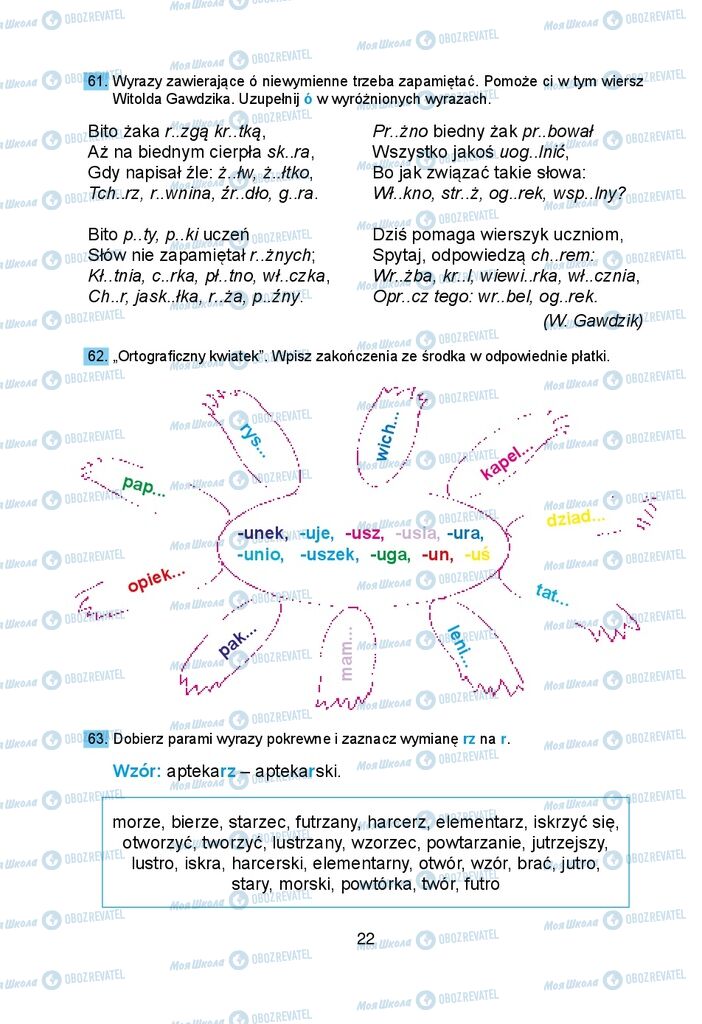 61. Wyrazy zawierające ó niewymienne trzeba zapamiętać. Pomoże ci w tym wiersz
Witolda Gawdzika. Uzupełnij ó w wyróżnionych wyrazach.
Bito żaka r..zgą kr..tką,
Aż na biednym cierpła sk..ra,
Gdy napisał źle: ż..łw, ż..łtko,
Tch..rz, r..wnina, źr..dło, g..ra.
Bito p..ty, p..ki uczeń
Słów nie zapamiętał r..żnych;
Kł..tnia, c..rka, pł..tno, wł..czka,
Ch..r, jask..łka, r..ża, p..źny.
Pr..żno biedny żak pr..bował
Wszystko jakoś uog..lnić,
Bo jak związać takie słowa:
Wł..kno, str..ż, og..rek, wsp..lny?
Dziś pomaga wierszyk uczniom,
Spytaj, odpowiedzą ch..rem:
Wr..żba, kr..l, wiewi..rka, wł..cznia,
Opr..cz tego: wr..bel, og..rek.
(W. Gawdzik)
62. „Ortograficzny kwiatek”. Wpisz zakończenia ze środka w odpowiednie płatki.
rys...
wich...
kapel...
pap...
dziad...
-unek, -uje, -usz, -usia, -ura,
-unio, -uszek, -uga, -un, -uś
opiek...
tat...
pak...
mam...
leni...
63. Dobierz parami wyrazy pokrewne i zaznacz wymianę rz na r.
Wzór: aptekarz – aptekarski.
morze, bierze, starzec, futrzany, harcerz, elementarz, iskrzyć się,
otworzyć, tworzyć, lustrzany, wzorzec, powtarzanie, jutrzejszy,
lustro, iskra, harcerski, elementarny, otwór, wzór, brać, jutro,
stary, morski, powtórka, twór, futro
22
Моя Школа OBOZREVATEL